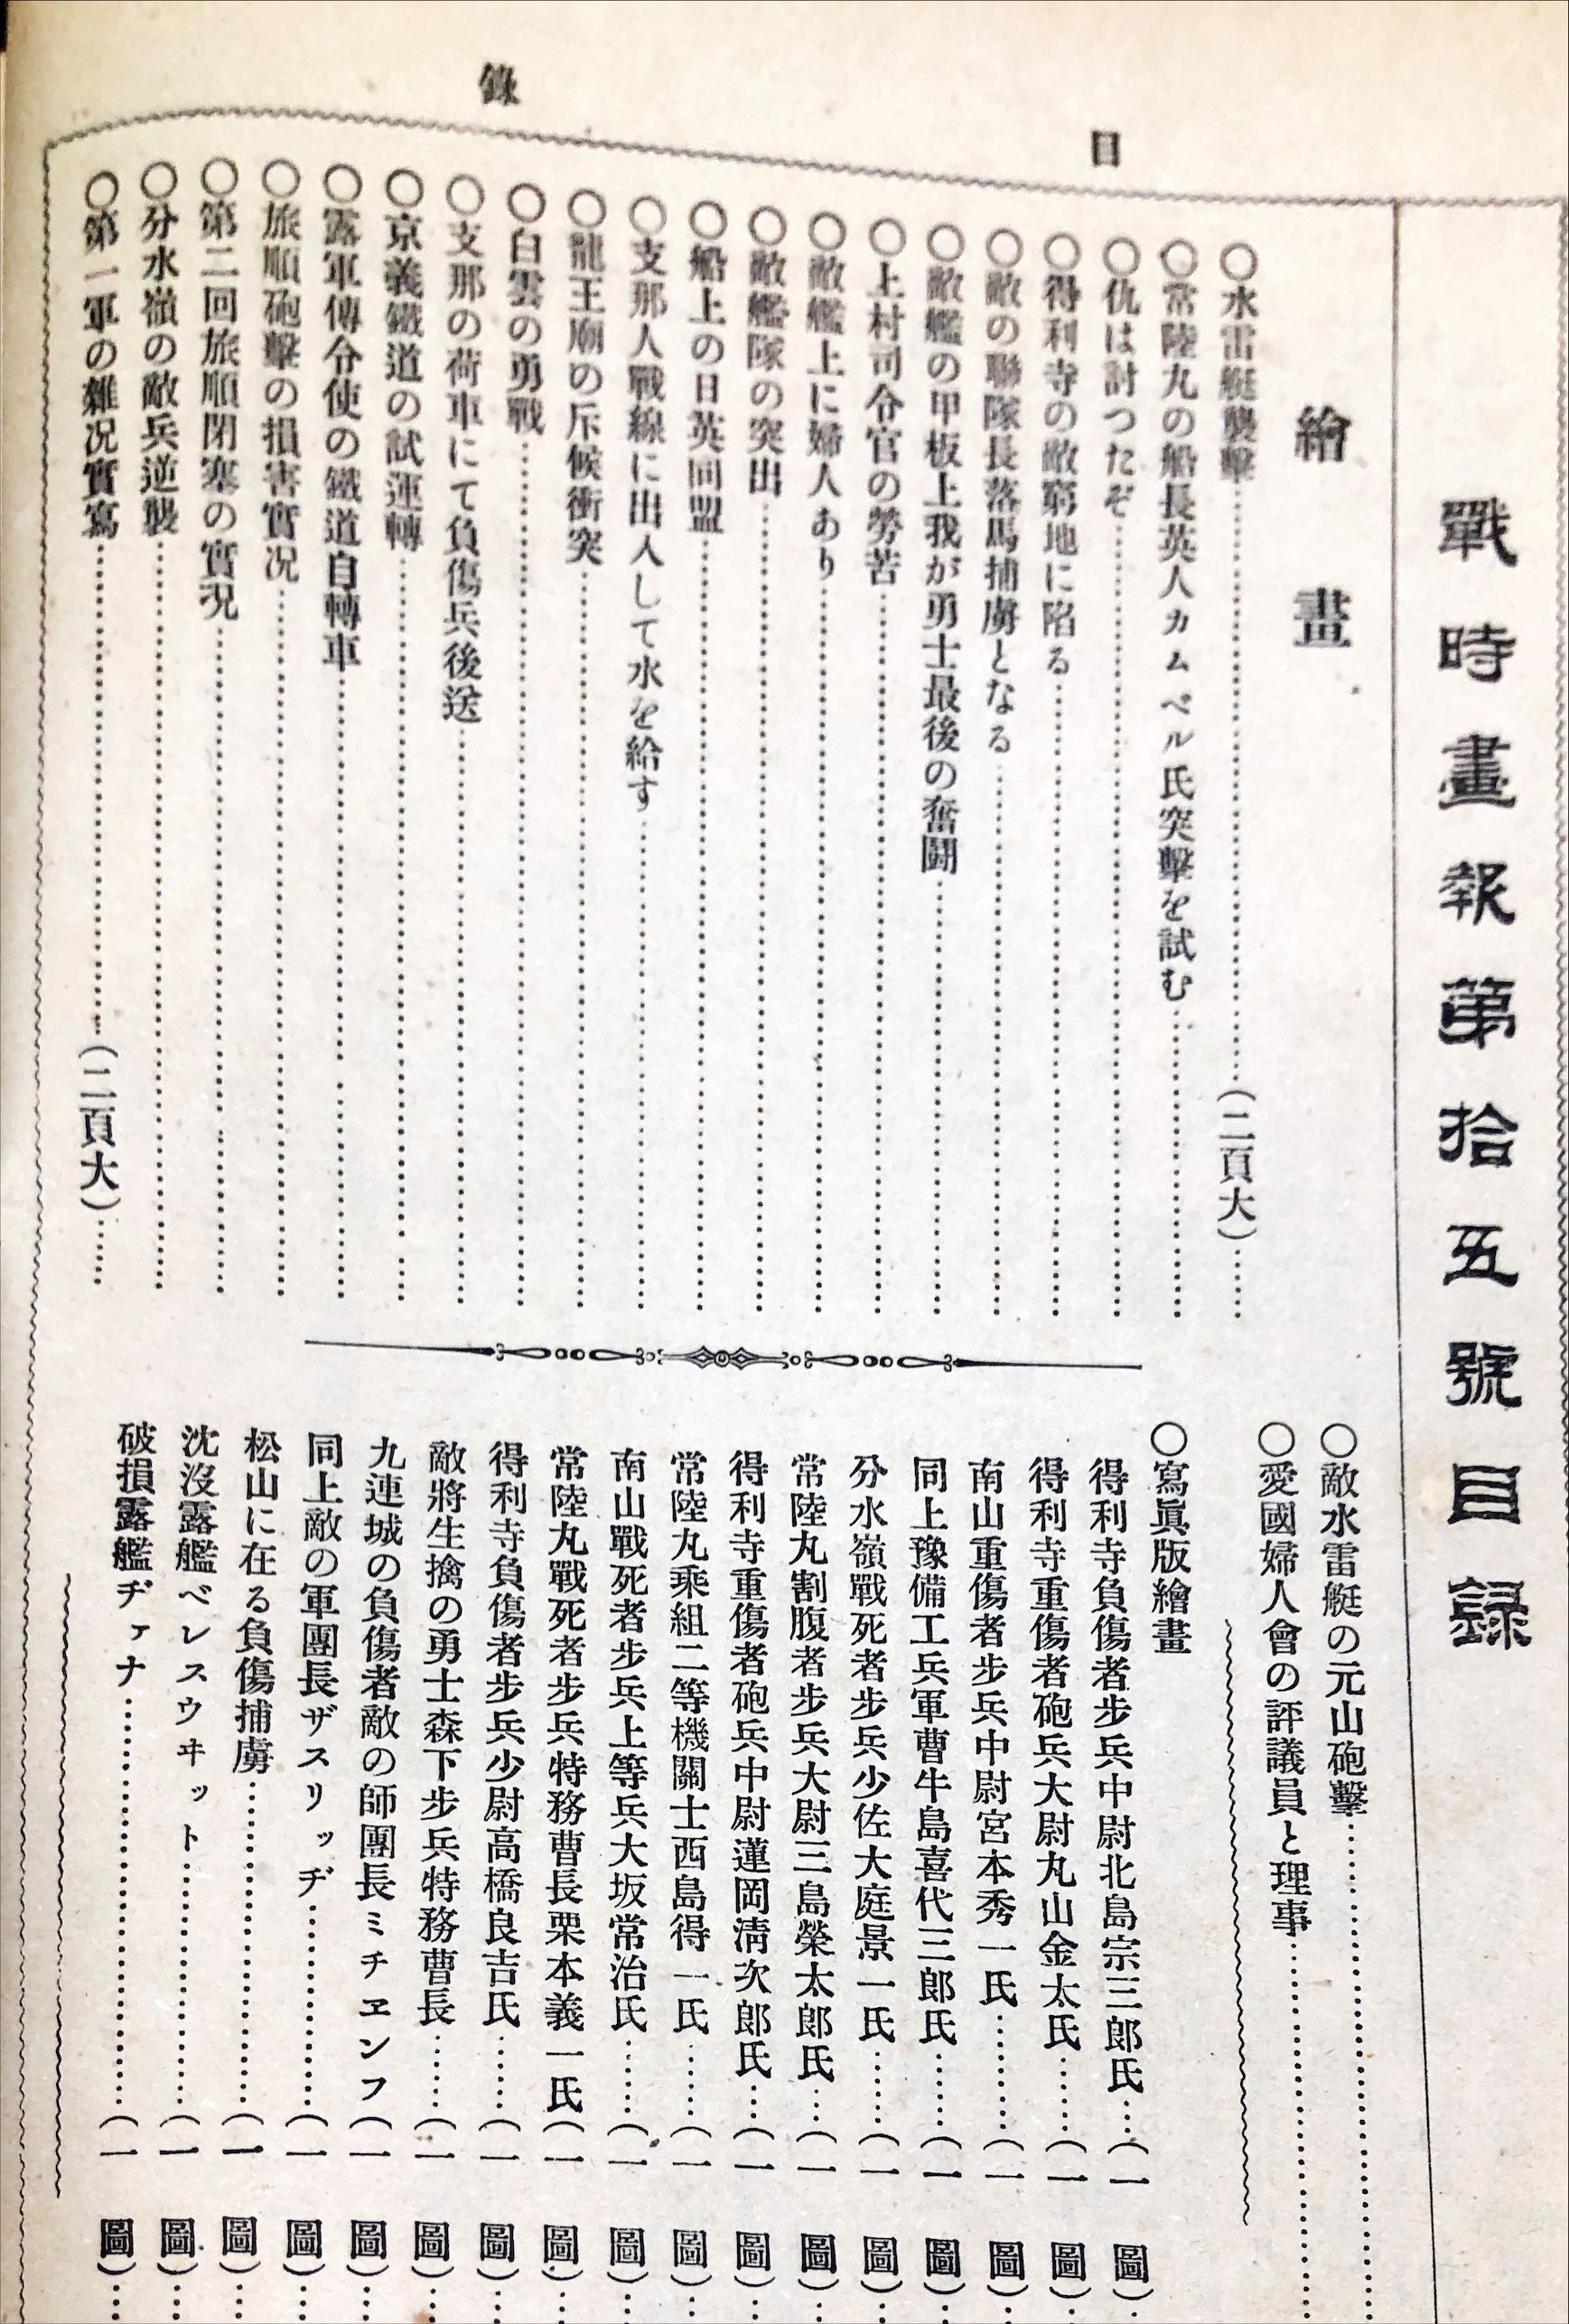 目錄
戰時畫報第拾五號目録
繪畫
○水雷艇襲擊……(二頁大)……
○常陸丸の船長英人カムペル氏突擊を試む……
○仇は討つたぞ……
○得利寺の敵窮地に陷る……
○敵の聯隊長落馬捕虜となる……
○敵艦の甲板上我が勇士最後の奮鬪……
○上村司令官の勞苦……
○敵艦上に婦人あり……
○敵艦隊の突出……
○船上の日英同盟……
○支那人戰線に出入して水を給す……
○龍王廟の斥候衝突……
○白雲の勇戰……
○支那の荷車にて負傷兵後送……
○京義鐵道の試運轉……
○露軍傳令使の鐵道自轉車……
○旅順砲擊の損害實况……
○第二回旅順閉塞の實况……
○分水嶺の敵兵逆襲……
○第一軍の雜况實寫……(二頁大)……
○敵水雷艇の元山砲擊……
○愛國婦人會の評議員と理事……
○寫眞版繪畫
得利寺負傷者步兵中尉北島宗三郎氏……(一圖)……
得利寺重傷者砲兵大尉丸山金太氏……(一圖)……
南山重傷者步兵中尉宮本秀一氏……(一圖)……
同上豫備工兵軍曹牛島喜代三郎氏……(一圖)……
分水嶺戰死者步兵少佐大庭景一氏……(一圖)……
常陸丸割腹者步兵大尉三島榮太郎氏……(一圖)……
得利寺重傷者砲兵中尉蓮岡淸次郎氏……(一圖)……
常陸丸乘組二等機關士西島得一氏……(一圖)……
南山戰死者步兵上等兵大坂常治氏……(一圖)……
常陸丸戰死者步兵特務曹長栗本義一氏(一圖)……
得利寺負傷者步兵少尉高橋良吉氏……(一圖)……
敵將生擒の勇士森下步兵特務曹長……(一圖)……
九連城の負傷者敵の師團長ミチヱンフ(一圖)……
同上敵の軍團長ザスリッヂ……(一圖)……
松山に在る負傷捕虜……(一圖)……
沈沒露艦ベレスウヰット……(一圖)……
破損露艦ヂァナ……(一圖)……